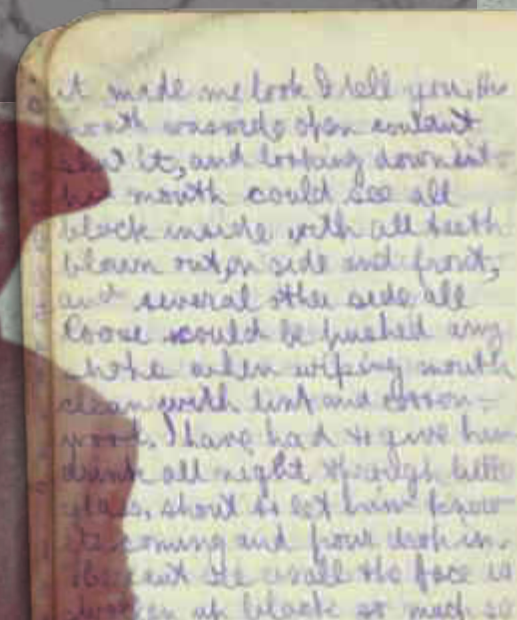 it made me look I tell you, his
mouth was wide open couldnt
shut it, and looking down into
his mouth could see all
black inside with all teeth
blown out, on side and front,
and several other side all
loose could be pushed any
where when wiping mouth
clean with lint and cotton-
wool. I have had to give him
drink all night through little
glass, shout to let him know
its coming and pour drop in.
He cant see as all the face is
up black so much so